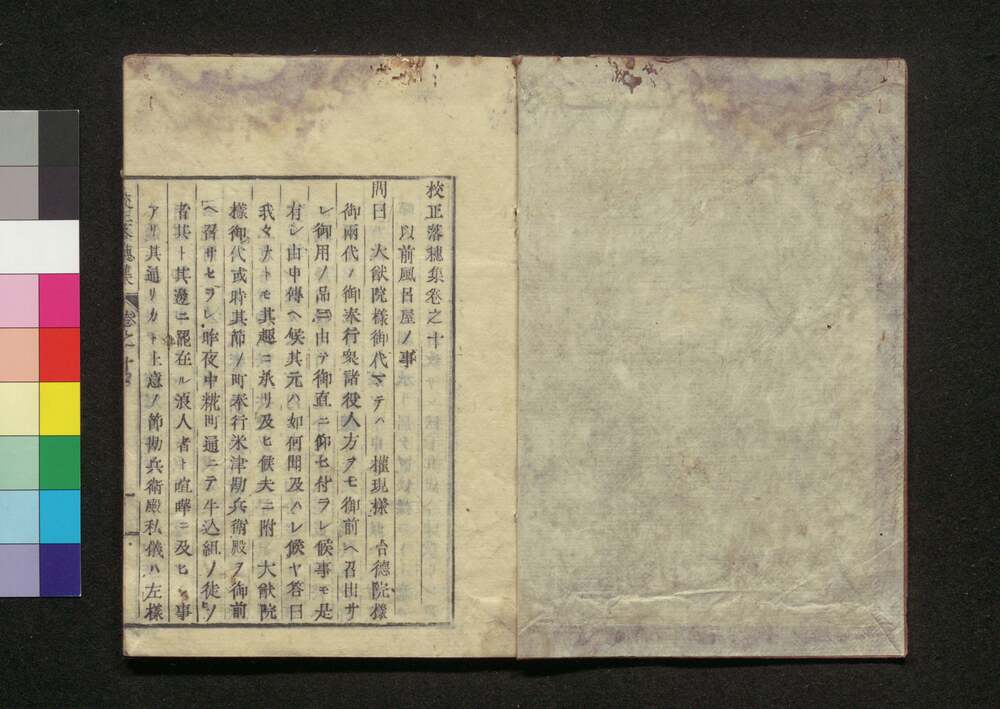 校正落穗集卷之十
以前風呂屋ノ事
問曰 大猷院樣御代マテハ 權現樣 台德院樣
御兩代ノ御奉行衆諸役人方ヲモ御前ヘ召出サ
レ御用ノ品ニ由テ御直ニ仰セ付ラレ候事モ是
有シ由申傳ヘ候其元ハ如何聞及ハレ候ヤ答曰
我々ナトモ其趣ニ承リ及ヒ候夫ニ附 大猷院
樣御代或時其節ノ町奉行米津勘兵衞殿ヲ御前
ヘ召サセラレ昨夜中糀町通ニテ牛込組ノ徒ノ
者其ト其邊ニ罷在ル浪人者ト喧嘩ニ及ヒシ事
アリ其通リカト上意ノ節勘兵衞殿私儀ハ左樣
校正落穗集 卷之十